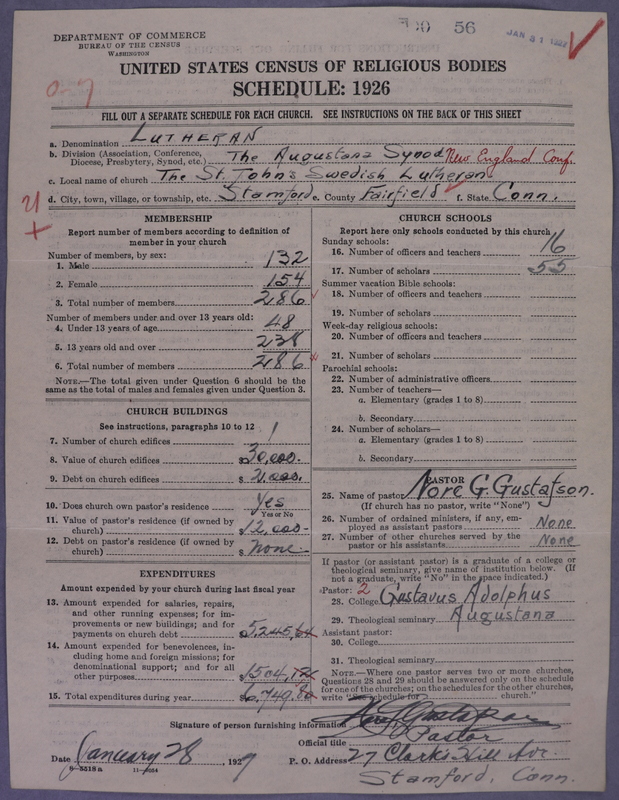 DEPARTMENT OF COMMERCE
BUREAU OF THE CENSUS
WASHINGTON
56
JAN 31 1927
UNITED STATES CENSUS OF RELIGIOUS BODIES
SCHEDULE: 1926
FILL OUT A SEPARATE SCHEDULE FOR EACH CHURCH. SEE INSTRUCTIONS ON THE BACK OF THIS SHEET
a. Denomination LUTHERAN
b. Division (Association, Conference, Diocese, Presbytery, Synod, etc.) The Augustana Synod New England Conf.
c. Local name of church The St. John's Swedish Lutheran
d. City, town, village, or township, etc. Stamford e. County Fairfield f. State Conn.
MEMBERSHIP
Report number of members according to definition of
member in your church
Number of members, by sex:
1. Male 132
2. Female 154
3. Total number of members 286
Number of members under and over 13 years old:
4. Under 13 years of age 48
5. 13 years old and over 238
6. Total number of members 286
NOTE.—The total given under Question 6 should be the
same as the total of males and females given under Question 3.
CHURCH BUILDINGS
See instructions, paragraphs 10 to 12
7. Number of church edifices 1
8. Value of church edifices $30,000.
9. Debt on church edifices $2,000.
10. Does church own pastor's residence Yes
Yes or No
11. Value of pastor's residence (if owned by
church) $12,000-
12. Debt on pastor's residence (if owned by
church) $ none
EXPENDITURES
Amount expended by your church during last fiscal year
13. Amount expended for salaries, repairs,
and other running expenses; for im-
provements or new buildings; and for
payments on church debt $5,245.64
14. Amount expended for benevolences, in-
cluding home and foreign missions; for
denominational support; and for all
other purposes $1504.
15. Total expenditures during year $6,749.80
CHURCH SCHOOLS
Report here only schools conducted by this church
Sunday schools:
16. Number of officers and teachers 16
17. Number of scholars 55
Summer vacation Bible schools:
18. Number of officers and teachers
19. Number of scholars
Week-day religious schools:
20. Number of officers and teachers
21. Number of scholars
Parochial schools:
22. Number of administrative officers
23. Number of teachers—
a. Elementary (grades 1 to 8)
b. Secondary
24. Number of scholars—
a. Elementary (grades 1 to 8)
b. Secondary
PASTOR
25. Name of pastor Nore G. Gustafson.
(If church has no pastor, write "None")
26. Number of ordained ministers, if any, em-
ployed as assistant pastors None
27. Number of other churches served by the
pastor or his assistants None
If pastor (or assistant pastor) is a graduate of a college or
theological seminary, give name of institution below. (If
not a graduate, write "No" in the space indicated.)
Pastor: 2
28. College Gustavus Adolphus
29. Theological seminary Augustana
Assistant pastor:
30. College
31. Theological seminary
NOTE.—Where one pastor serves two or more churches,
Questions 28 and 29 should be answered only on the schedule
for one of the churches; on the schedules for the other churches,
write "See schedule for church."
Signature of person furnishing information Nore G. Gustafson
Official title Pastor
Date January 28, 1927
P. O. Address 27 Clarks Hill Ave.
Stamford, Conn.
8-5518a 11-9054